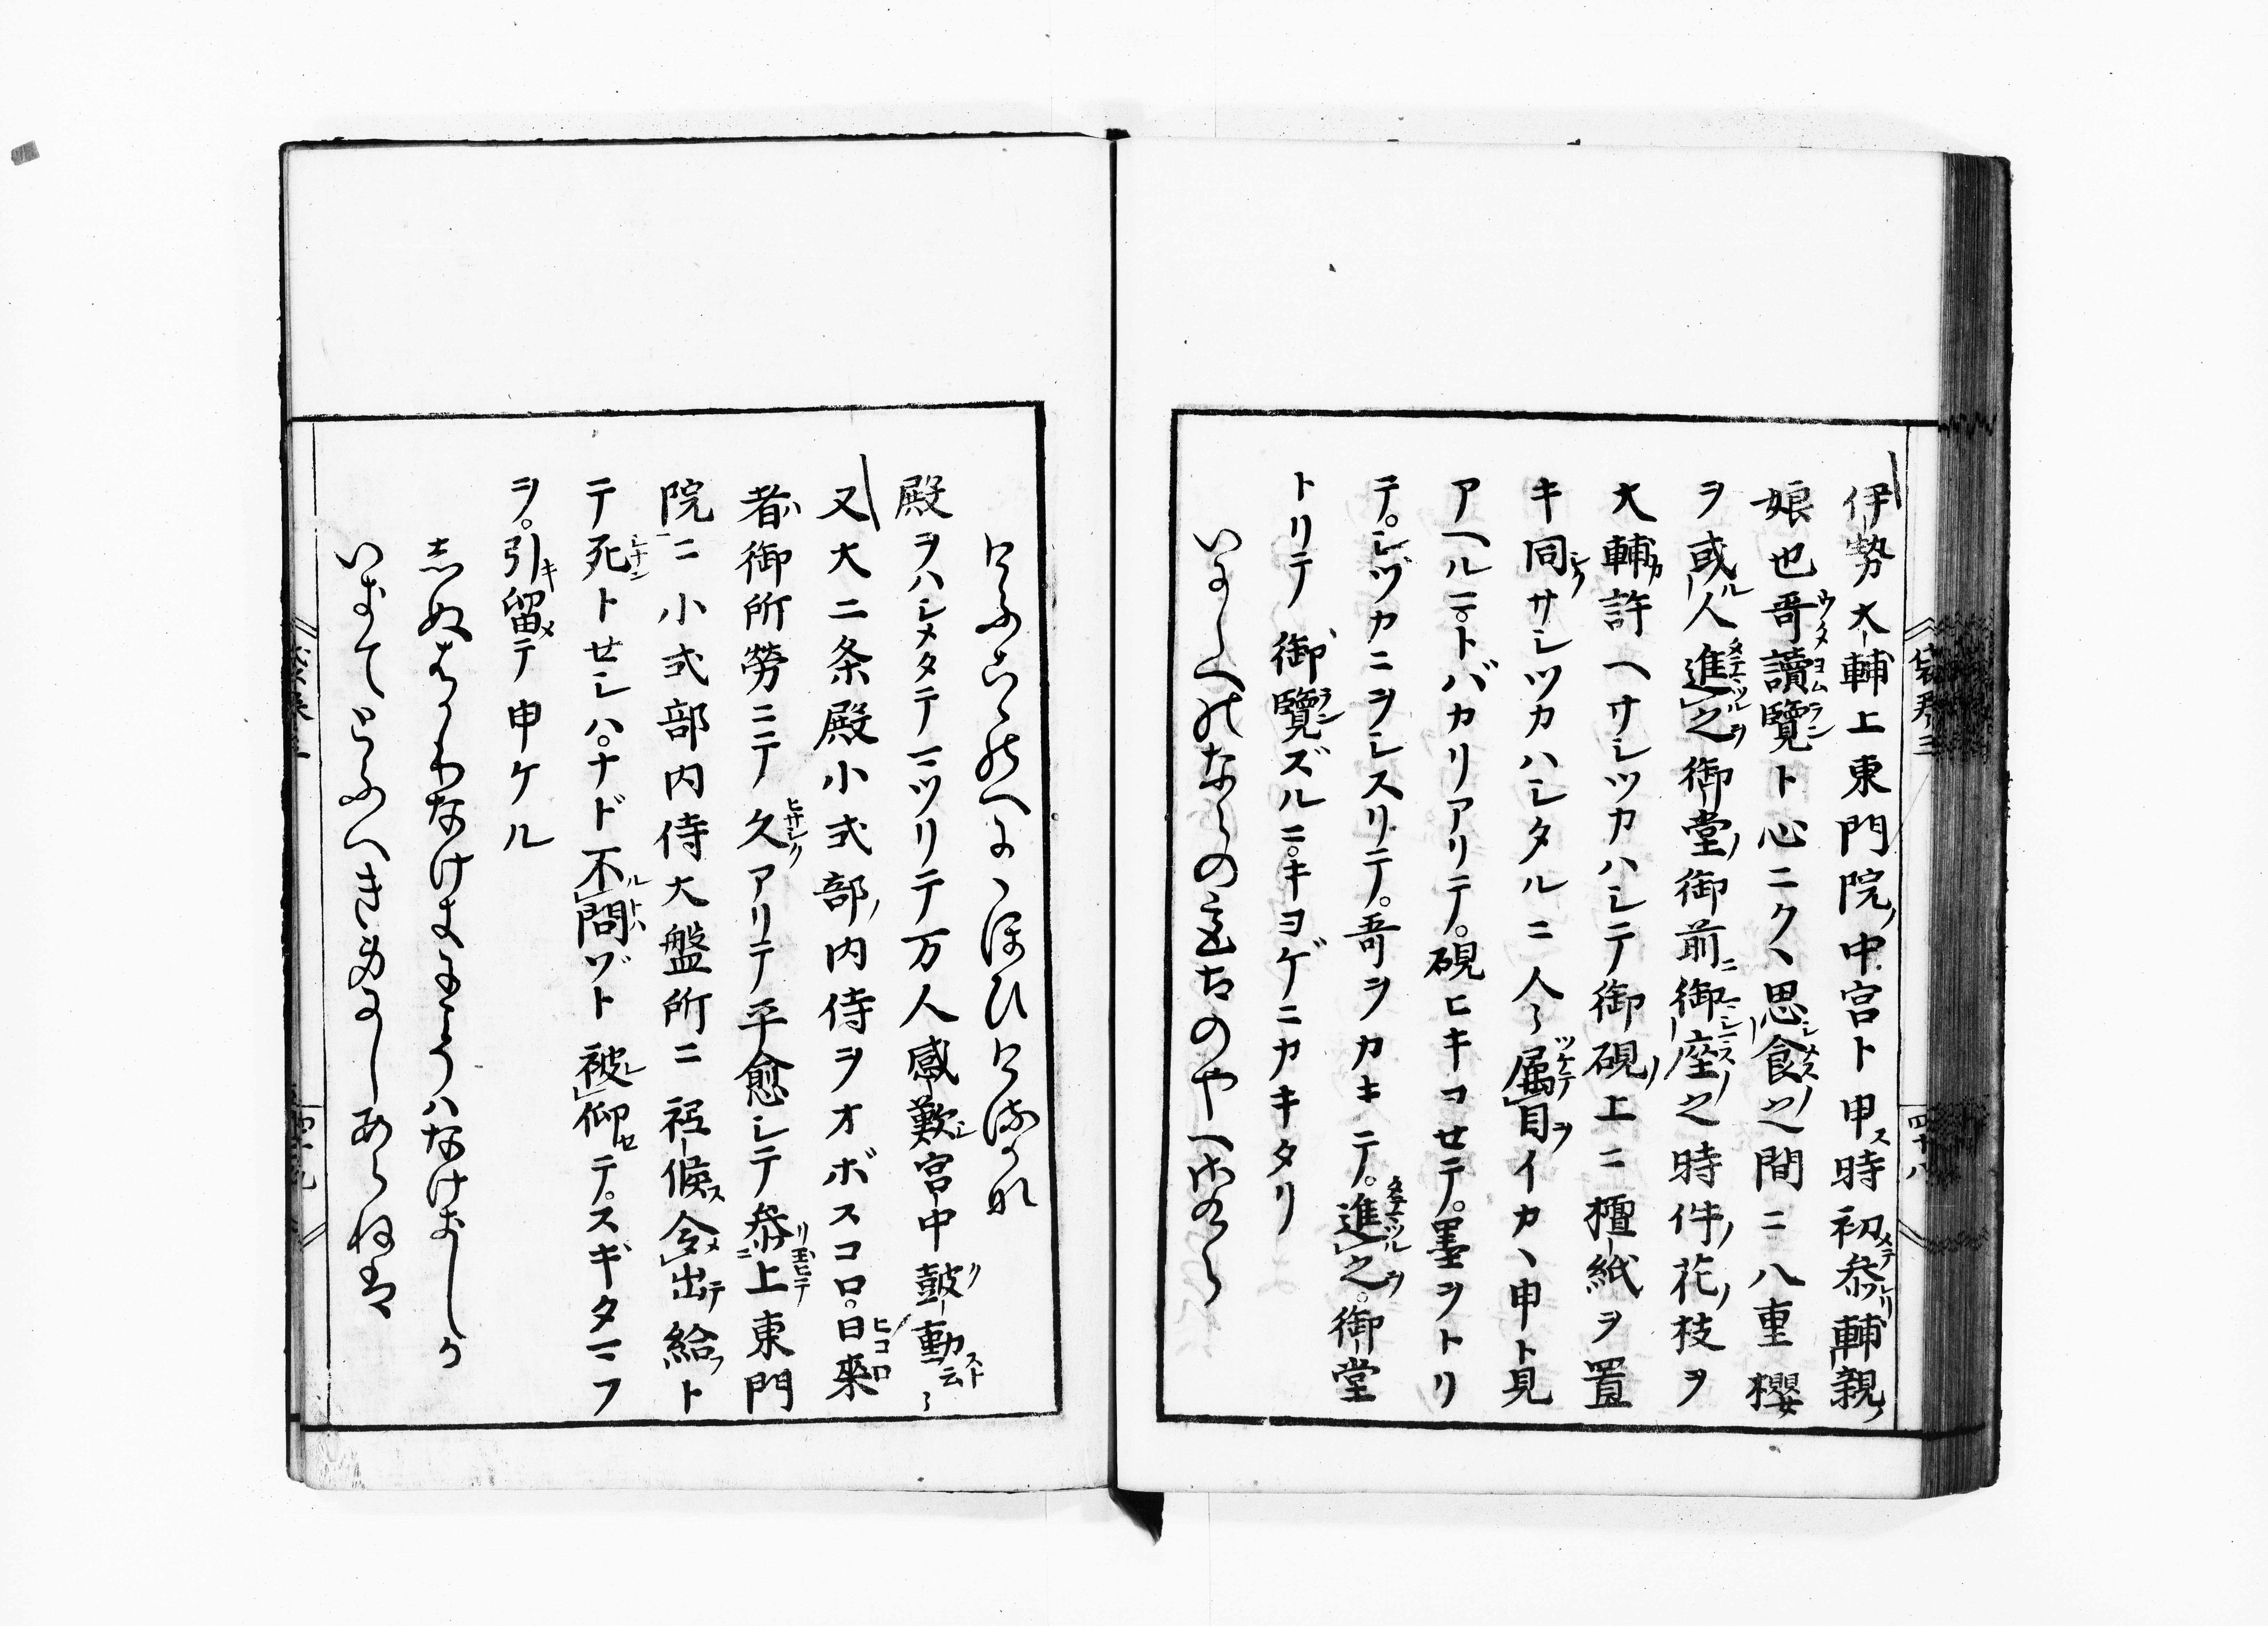 伊勢大輔上東門院ノ中宮ト申ス時初メテ参レリ輔親ノ
娘也哥讀覽ト心ニクヽ思食之間ニ八重櫻
ヲ或ル人進之御堂ノ御前ニ御座之時件ノ花ノ枝ヲ
大輔カ許ヘサシツカハシテ御硯ノ上ニ檀紙ヲ置
キ同シクサシツカハシタルニ人々属目ヲイカヽ申ト見
アヘルニ。トバカリアリテ。硯ヒキコセテ。墨ヲトリ
テ。シヅカニヲシスリテ。哥ヲカキテ。進之。御堂
トリテ御覽ズルニ。キヨゲニカキタリ
いにしへのならの宮古のやへさくら
けふこゝのへにゝほひけるかな
殿ヲハシメタテマツリテ万人感歎シ宮中皷動スト云々
又大二条殿小式部ノ内侍ヲオボスコロ。日來
者ハ御所勞ニテ久アリテ平愈シテ參リ玉ヒテ上東門
院ニ小式部内侍大盤所ニ祗候ス令メ出テ給フト
テ死トセシハ。ナド不問ゾト被仰セテ。スギタマフ
ヲ。引キ留メテ申ケル
志ぬはかりなけきにこそハなけきしか
いきてとふへき身にしあらねは
袋草三
四十八